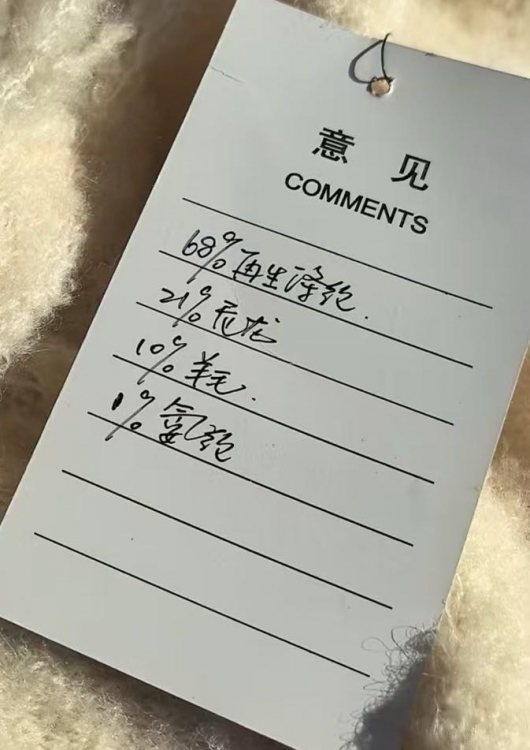 意 见
COMMENTS
68% 再生涤纶.
21% 尼龙
10% 羊毛.
1% 氨纶